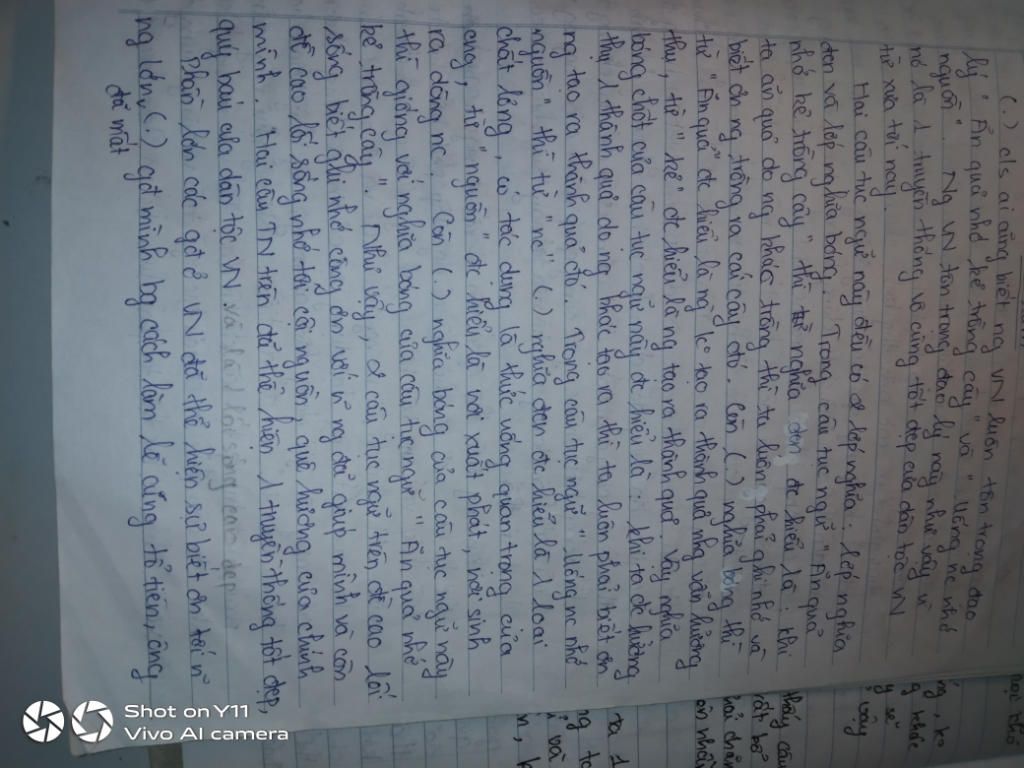 (.) c/s ai cũng biết ng VN luôn tôn trọng đạo
lý " Ăn quả nhớ kẻ trồng cây" và " Uống nc nhớ
nguồn". Ng VN tôn trọng đạo lý này như vậy vì
nó là 1 truyền thống vô cùng tốt đẹp của dân tộc VN
từ xưa tới nay.
Hai câu tục ngữ này đều có 2 lớp nghĩa. lớp nghĩa
đen và lớp nghĩa bóng. Trong câu tục ngữ " Ăn quả
nhớ kẻ trồng cây" thì nghĩa đen đc hiểu là: khi
ta ăn quả do ng khác trồng thì ta luôn phải ghi nhớ và
biết ơn ng trồng ra cái cây đó. Còn (.) nghĩa bóng thì
từ " Ăn quả" đc hiểu là ng ko tạo ra thành quả nhg vẫn hưởng
thụ, từ " kẻ" đc hiểu là ng tạo ra thành quả. Vậy nghĩa
bóng chốt của câu tục ngữ này đc hiểu là: khi ta đc hưởng
thụ 1 thành quả do ng khác tạo ra thì ta luôn phải biết ơn
ng tạo ra thành quả đó. Trong câu tục ngữ " Uống nc nhớ
nguồn" thì từ " nc" (.) nghĩa đen đc hiểu là 1 loại
chất lỏng, có tác dụng là thức uống quan trọng của
ng, từ " nguồn" đc hiểu là nơi xuất phát, nơi sinh
ra dòng nc. Còn (.) nghĩa bóng của câu tục ngữ này
thì giống với nghĩa bóng của câu tục ngữ " Ăn quả nhớ
kẻ trồng cây". Như vậy, 2 câu tục ngữ trên đề cao lối
sống biết ghi nhớ công ơn với n~ ng đã giúp mình và còn
đề cao lối sống nhớ tới cội nguồn, quê hương của chính
mình. Hai câu TN trên đã thể hiện 1 truyền thống tốt đẹp,
quý báu của dân tộc VN và là 1 lối sống cao đẹp.
Phần lớn các gđ ở VN đã thể hiện sự biết ơn tới n~
ng lớn (.) gđ mình bg cách làm lễ cúng tổ tiên, ông
đã mất
Shot on Y11
Vivo AI camera